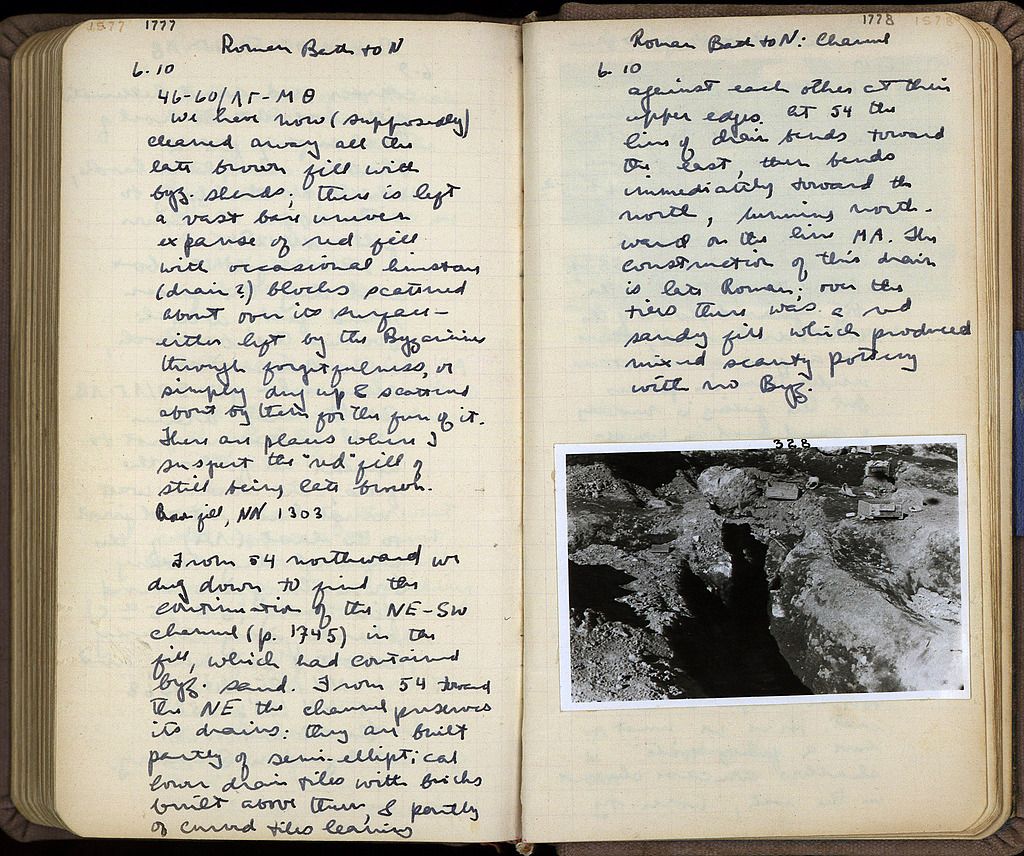 1577 1777
Roman Bath to N
6.10
46-60/ΛΓ-ΜΘ
We have now (supposedly)
cleared away all the
late brown fill with
byz. sherds; there is left
a vast bare uneven
expanse of red fill
with occasional limestone
(drain?) blocks scattered
about over its surface –
either left by the Byzantines
through forgetfulness, or
simply dug up & scattered
about by them for the fun of it.
There are places where I
suspect the "red" fill of
still being late brown.
fill, NN 1303
From 54 northward we
dug down to find the
continuation of the NE-SW
channel (p. 1745) in the
fill, which had contained
byz. sand. From 54 toward
the NE the channel preserves
its drains: they are built
partly of semi-elliptical
lower drain tiles with bricks
built above them, & partly
of curved tiles leaning
1778 1578
Roman Bath to N: Channel
6.10
against each other at their
upper edges. At 54 the
line of drain bends toward
the east, then bends
immediately toward the
north, running north-
ward on the line MA. The
construction of this drain
is late Roman; over the
tiles there was a red
sandy fill which produced
mixed scanty pottery
with no Byz.
328